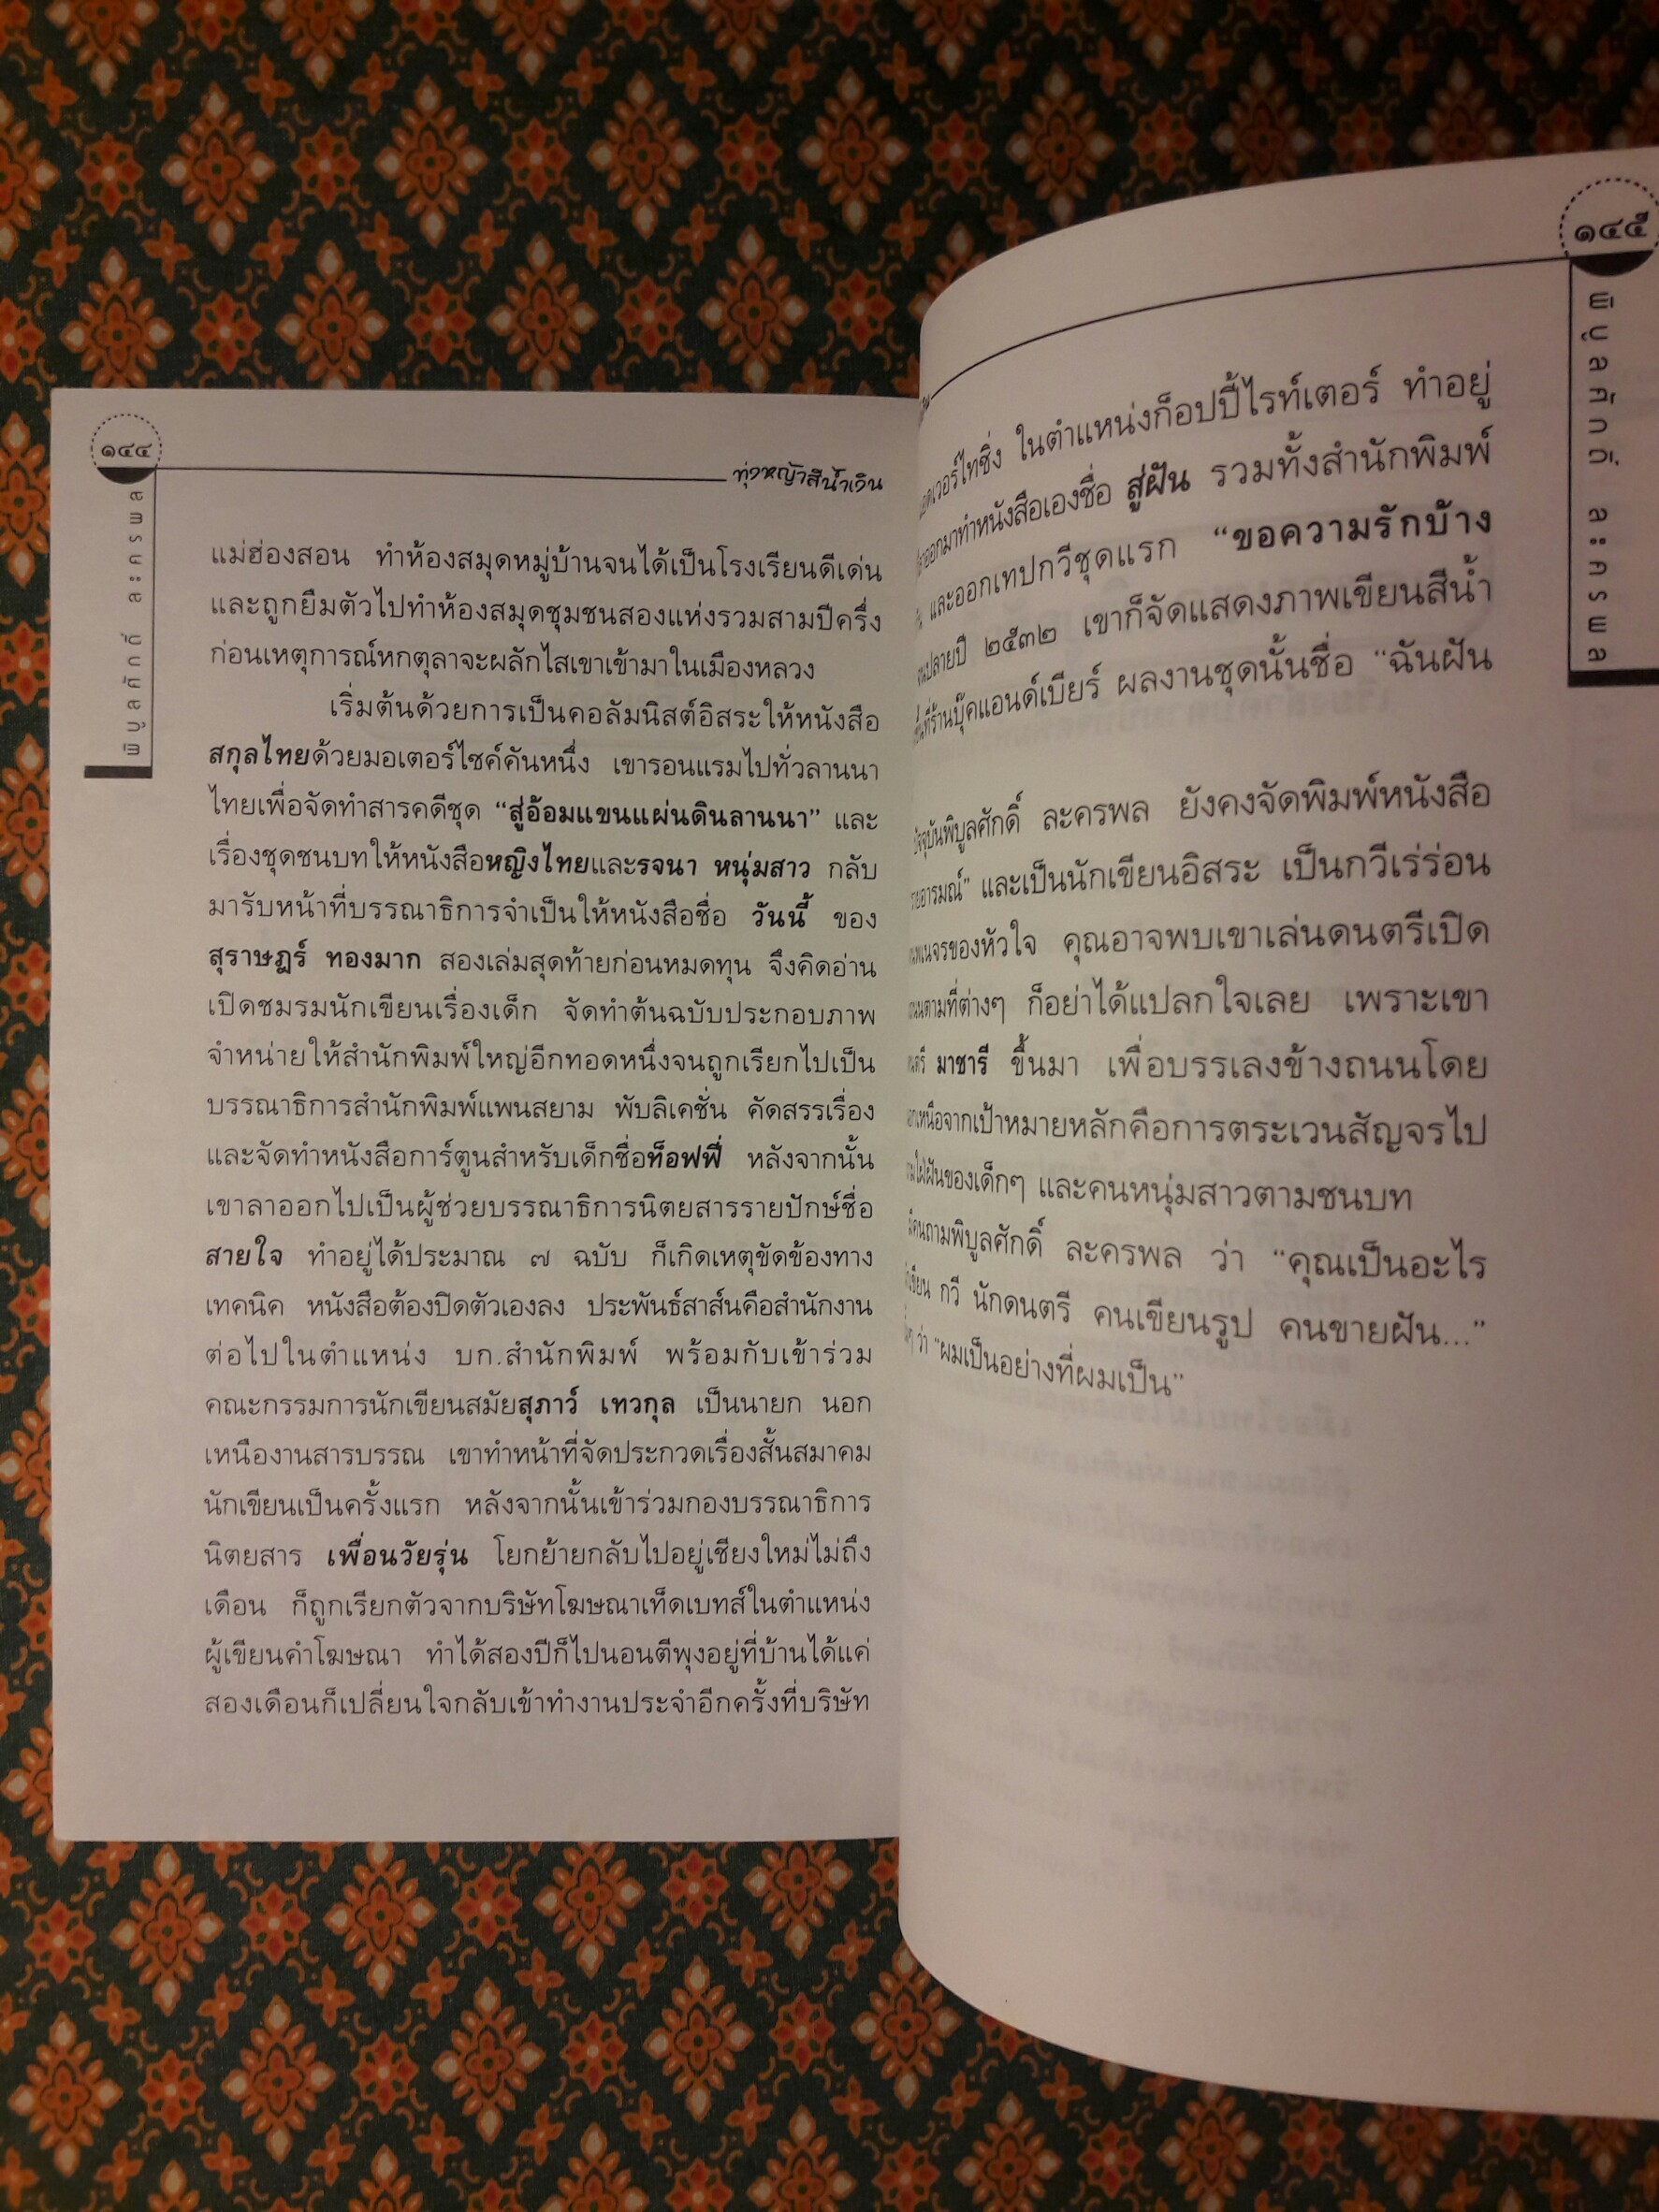 ๑๔๔
ทุ่งหญ้าสีน้ำเงิน
พิบูลศักดิ์ ละครพล
แม่ฮ่องสอน ทำห้องสมุดหมู่บ้านจนได้เป็นโรงเรียนดีเด่น
และถูกยืมตัวไปทำห้องสมุดชุมชนสองแห่งรวมสามปีครึ่ง
ก่อนเหตุการณ์หกตุลาจะผลักไสเขาเข้ามาในเมืองหลวง
เริ่มต้นด้วยการเป็นคอลัมนิสต์อิสระให้หนังสือ
สกุลไทยด้วยมอเตอร์ไซค์คันหนึ่ง เขารอนแรมไปทั่วลานนา
ไทยเพื่อจัดทำสารคดีชุด “สู่อ้อมแขนแผ่นดินลานนา” และ
เรื่องชุดชนบทให้หนังสือหญิงไทยและรจนา หนุ่มสาว กลับ
มารับหน้าที่บรรณาธิการจำเป็นให้หนังสือชื่อ วันนี้ ของ
สุราษฎร์ ทองมาก สองเล่มสุดท้ายก่อนหมดทุน จึงคิดอ่าน
เปิดชมรมนักเขียนเรื่องเด็ก จัดทำต้นฉบับประกอบภาพ
จำหน่ายให้สำนักพิมพ์ใหญ่อีกทอดหนึ่งจนถูกเรียกไปเป็น
บรรณาธิการสำนักพิมพ์แพนสยาม พับลิเคชั่น คัดสรรเรื่อง
และจัดทำหนังสือการ์ตูนสำหรับเด็กชื่อท็อฟฟี่ หลังจากนั้น
เขาลาออกไปเป็นผู้ช่วยบรรณาธิการนิตยสารรายปักษ์ชื่อ
สายใจ ทำอยู่ได้ประมาณ ๗ ฉบับ ก็เกิดเหตุขัดข้องทาง
เทคนิค หนังสือต้องปิดตัวเองลง ประพันธ์สาส์นคือสำนักงาน
ต่อไปในตำแหน่ง บก.สำนักพิมพ์ พร้อมกับเข้าร่วม
คณะกรรมการนักเขียนสมัยสุภาว์ เทวกุล เป็นนายก นอก
เหนืองานสารบรรณ เขาทำหน้าที่จัดประกวดเรื่องสั้นสมาคม
นักเขียนเป็นครั้งแรก หลังจากนั้นเข้าร่วมกองบรรณาธิการ
นิตยสาร เพื่อนวัยรุ่น โยกย้ายกลับไปอยู่เชียงใหม่ไม่ถึง
เดือน ก็ถูกเรียกตัวจากบริษัทโฆษณาเท็ดเบทส์ในตำแหน่ง
ผู้เขียนคำโฆษณา ทำได้สองปีก็ไปนอนตีพุงอยู่ที่บ้านได้แค่
สองเดือนก็เปลี่ยนใจกลับเข้าทำงานประจำอีกครั้งที่บริษัท
๑๔๕
พิบูลศักดิ์ ละครพล
ในตำแหน่งก็อปปี้ไรท์เตอร์ ทำอยู่
ออกมาทำหนังสือเองชื่อ สู่ฝัน รวมทั้งสำนักพิมพ์
และออกเทปกวีชุดแรก “ขอความรักบ้าง
ปลายปี ๒๕๓๒ เขาก็จัดแสดงภาพเขียนสีน้ำ
ที่ร้านบุ๊คแอนด์เบียร์ ผลงานชุดนั้นชื่อ “ฉันฝัน
พิบูลศักดิ์ ละครพล ยังคงจัดพิมพ์หนังสือ
และเป็นนักเขียนอิสระ เป็นกวีเร่ร่อน
ของหัวใจ คุณอาจพบเขาเล่นดนตรีเปิด
ตามที่ต่างๆ ก็อย่าได้แปลกใจเลย เพราะเขา
มาชารี ขึ้นมา เพื่อบรรเลงข้างถนนโดย
เหนือจากเป้าหมายหลักคือการตระเวนสัญจรไป
ใฝ่ฝันของเด็กๆ และคนหนุ่มสาวตามชนบท
คนถามพิบูลศักดิ์ ละครพล ว่า “คุณเป็นอะไร
กวี นักดนตรี คนเขียนรูป คนขายฝัน...”
ว่า “ผมเป็นอย่างที่ผมเป็น”